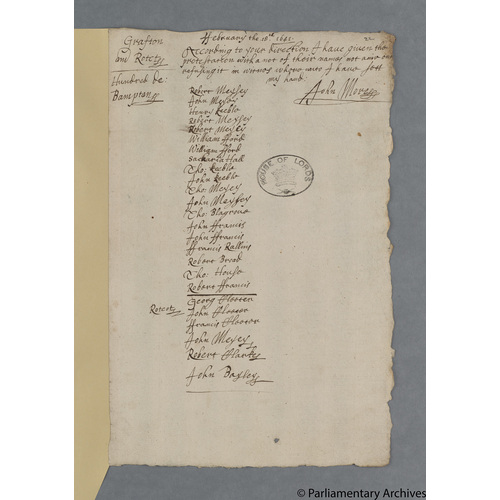 Grafton
and Retcot
Hundred de
Bampton
February the 18th 1641
22
According to your direction I have given the
protestation with a not of their names not anie one
refusing it in witnes whereof I have sett
my hand.
John Mores
Robert Meysey
John Meysey
Henry Keeble
Robert Meysey
Robert Meysey
William fford
William fford
Zacharia Hall
Tho: Keeble
John Keeble
Tho: Meysey
John Meysey
Tho: Blagrove
John ffrancis
John ffrancis
ffrancis Rallins
Robert Brook
Tho: House
Robert ffrancis
Retcot
Georg
John
ffrancis
John Meysey
Robert Clarke
John Baxley
HOUSE OF LORDS
© Parliamentary Archives